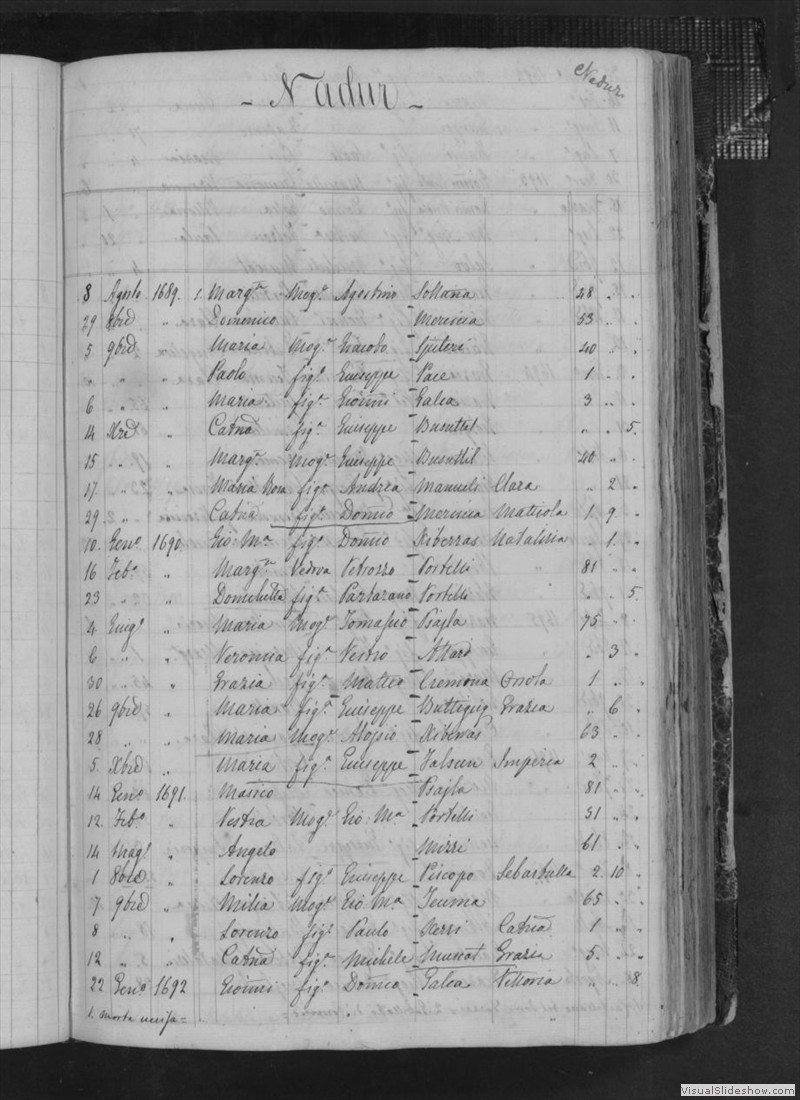 Nadur
- Nadur -
8 Agosto 1689. 1. Marg.ta Mog.e Agostino Soltana 48 " "
29 8bre " Domenico Mercieca 53 " "
5 9bre " Maria Mog.e Giacobo 40 " "
" " " Paolo fig.o Giuseppe Pace 1 " "
6 " " Maria fig.a Gio:nni Galea 3 " "
14 Xbre " Catna fig.a Giuseppe Busuttil " " 5.
15 " " Marg.ta Mog.e Giuseppe Busuttil 40 " "
17 " " Maria Rosa fig.a Andrea Manueli Clara " 2 "
29 " " Catna fig.a Domco Mercieca Matteola 1 9 "
10. Gen.o 1690. Gio: Ma fig.o Domco Xiberras Natalizia . 1. "
16 Feb.o " Marg.ta Vedova Petrosso Portelli 81 " "
23 " " fig.a Portelli " " 5.
4 Giug.o " Maria Mog.e Tomasso Psajla 75 " "
6 " " Veronica fig.a Pietro Attard . 3 .
30 " " Grazia fig.a Matteo Cremona Orsola 1 " "
26 9bre " Maria fig.a Giuseppe Buttigieg Grazia " 6 "
28 " " Maria Mog.e Aloisio Xiberras 63 " "
5. Xbre " Maria fig.a Giuseppe Falsun Imperia 2 " "
14 Gen.o 1691. Psajla 81 " "
12. Feb.o " Mog.e Gio: Ma Portelli 51 " "
14 Mag.o " Angelo Mizzi 61 " "
1 8bre " Lorenzo fig.o Giuseppe Piscopo 2. 10 "
7 9bre " Milia Mog.e Gio: Ma Teuma 65 " "
8 " " Lorenzo fig.o Paulo Xerri Catna 1 " "
12 " " Catna fig.a Michele Muscat Grazia 5. " "
22 Gen.o 1692 Gio:nni fig.o Domco Galea Vittoria " " 8.
1. Morta uccisa =
VisualSlideshow.com